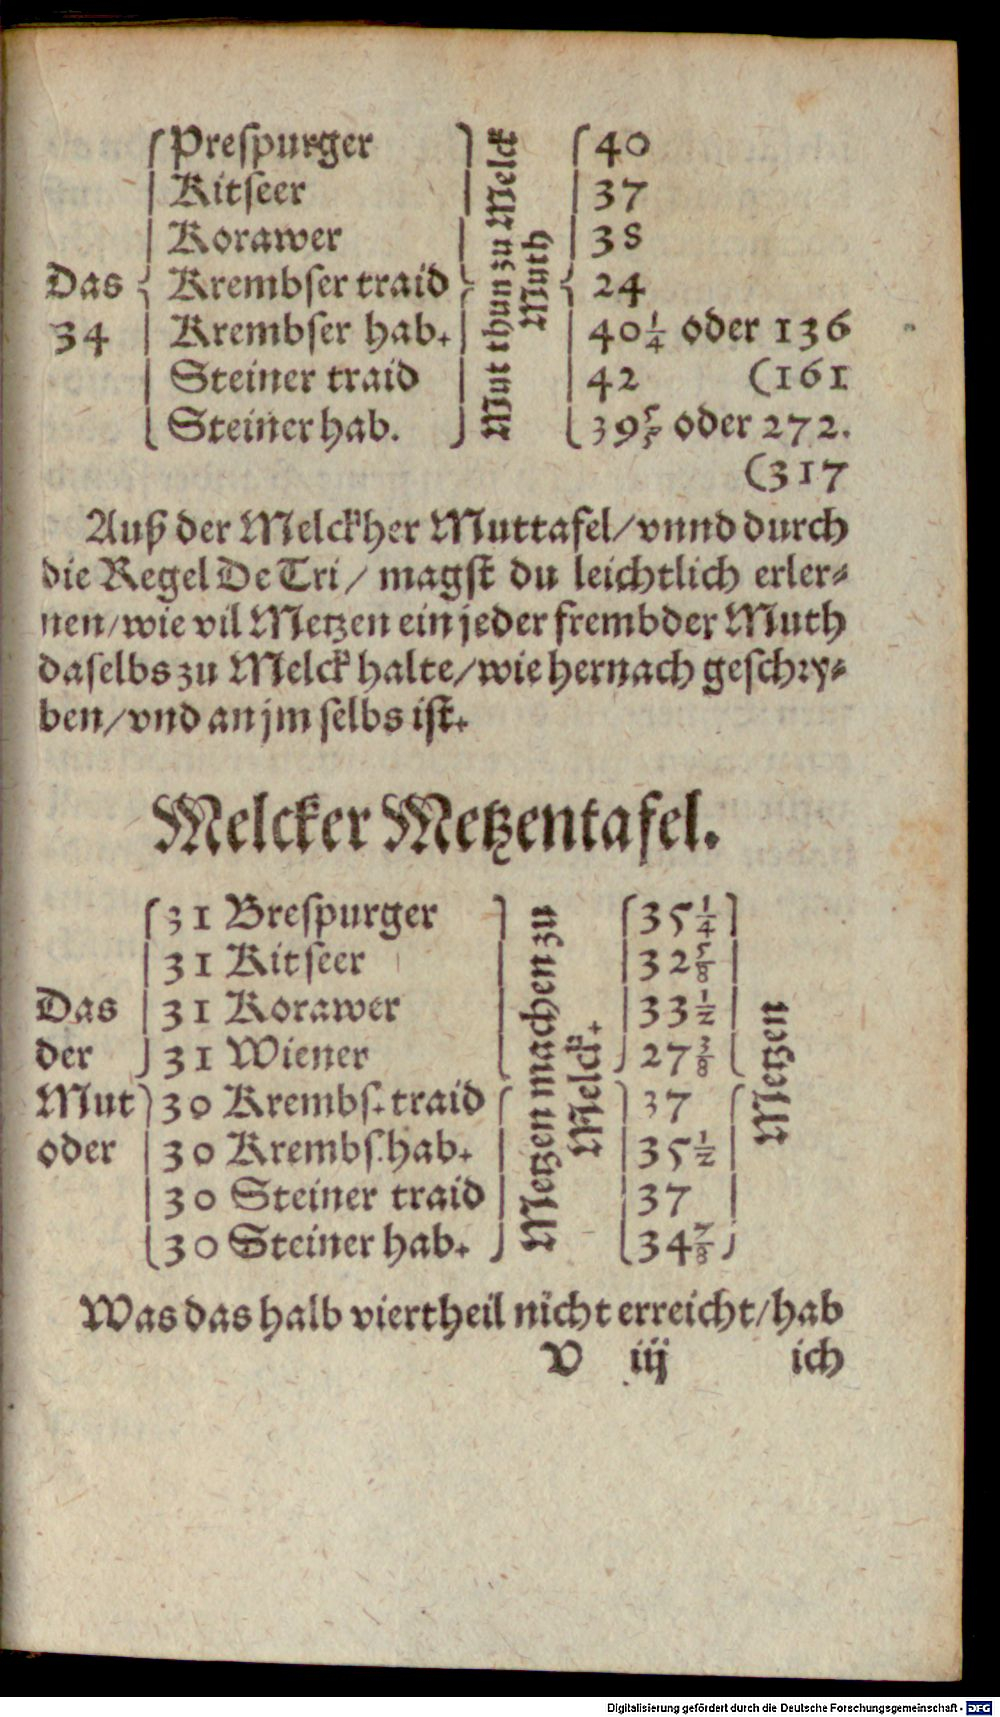 Prespurger 40
Kitseer 37
Korawer 38
Das Krembser traid 24
34 Krembser hab. 40 1/4 oder 136
Steiner traid 42 (161
Steiner hab. 39 5/5 oder 272.
(317
Mut thun zu Melck
Muth
Auß der Melckher Muttafel/vnnd durch
die Regel De Tri/ magst du leichtlich erler⸗
nen/wie vil Metzen ein jeder frembder Muth
daselbs zu Melck halte/wie hernach geschry⸗
ben/vnd an jm selbs ist.
Melcker Metzentafel.
31 Brespurger 35 1/4
31 Kitseer 32 5/8
Das 31 Korawer 33 1/2
der 31 Wiener 27 3/8
Mut 30 Krembs. traid 37
oder 30 Krembs. hab. 35 1/2
30 Steiner traid 37
30 Steiner hab. 34 7/8
Metzen machen zu
Melck.
Metzen
Was das halb viertheil nicht erreicht/hab
V iij ich
Digitalisierung gefördert durch die Deutsche Forschungsgemeinschaft - DFG